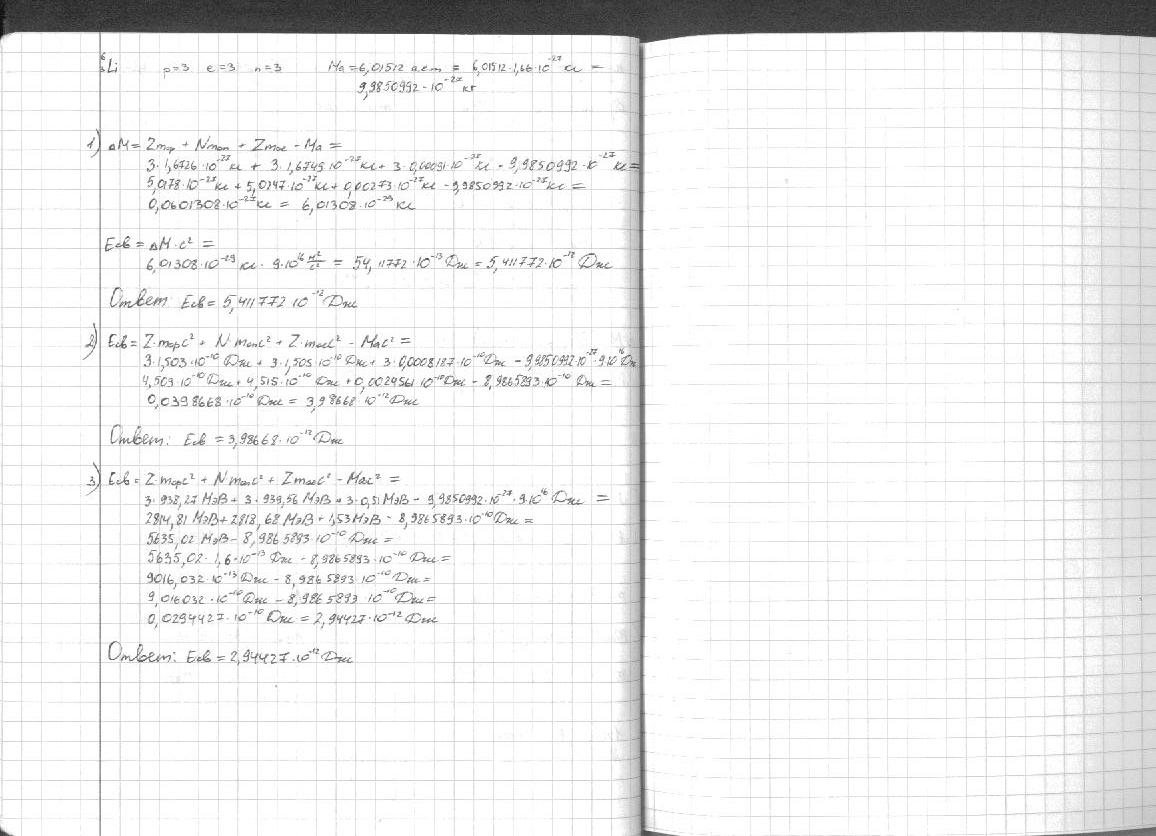 ⁶₃Li p=3 e=3 n=3 Ma=6,01512 а.е.м = 6,01512·1,66·10⁻²⁷ кг =
9,9850992·10⁻²⁷ кг
1) ΔM = Zmp + Nmn + Zme - Ma =
3·1,6726·10⁻²⁷кг + 3·1,6749·10⁻²⁷кг + 3·0,00091·10⁻²⁷кг - 9,9850992·10⁻²⁷ кг =
5,0178·10⁻²⁷кг + 5,0247·10⁻²⁷кг + 0,00273·10⁻²⁷кг - 9,9850992·10⁻²⁷кг =
0,0601308·10⁻²⁷кг = 6,01308·10⁻²⁹кг
Eсв = ΔM·c² =
6,01308·10⁻²⁹ кг · 9·10¹⁶ м²/с² = 54,11772·10⁻¹³ Дж = 5,411772·10⁻¹² Дж
Ответ: Eсв = 5,411772·10⁻¹² Дж
2) Eсв = Z·mpc² + N·mnc² + Z·mec² - Mac² =
3·1,503·10⁻¹⁰ Дж + 3·1,505·10⁻¹⁰ Дж + 3·0,0008187·10⁻¹⁰ Дж - 9,9850992·10⁻²⁷·9·10¹⁶ Дж
4,509·10⁻¹⁰ Дж + 4,515·10⁻¹⁰ Дж + 0,0024561·10⁻¹⁰Дж - 8,9865893·10⁻¹⁰ Дж =
0,0398668·10⁻¹⁰ Дж = 3,98668·10⁻¹² Дж
Ответ: Eсв = 3,98668·10⁻¹² Дж
3) Eсв = Z·mpc² + N·mnc² + Zmec² - Mac² =
3·938,27 МэВ + 3·939,56 МэВ + 3·0,51 МэВ - 9,9850992·10⁻²⁷·9·10¹⁶ Дж =
2814,81 МэВ + 2818,68 МэВ + 1,53 МэВ - 8,9865893·10⁻¹⁰ Дж =
5635,02 МэВ - 8,9865893·10⁻¹⁰ Дж =
5635,02·1,6·10⁻¹³ Дж - 8,9865893·10⁻¹⁰ Дж =
9016,032·10⁻¹³ Дж - 8,9865893·10⁻¹⁰ Дж =
9,016032·10⁻¹⁰ Дж - 8,9865893·10⁻¹⁰ Дж =
0,0294427·10⁻¹⁰ Дж = 2,94427·10⁻¹² Дж
Ответ: Eсв = 2,94427·10⁻¹² Дж